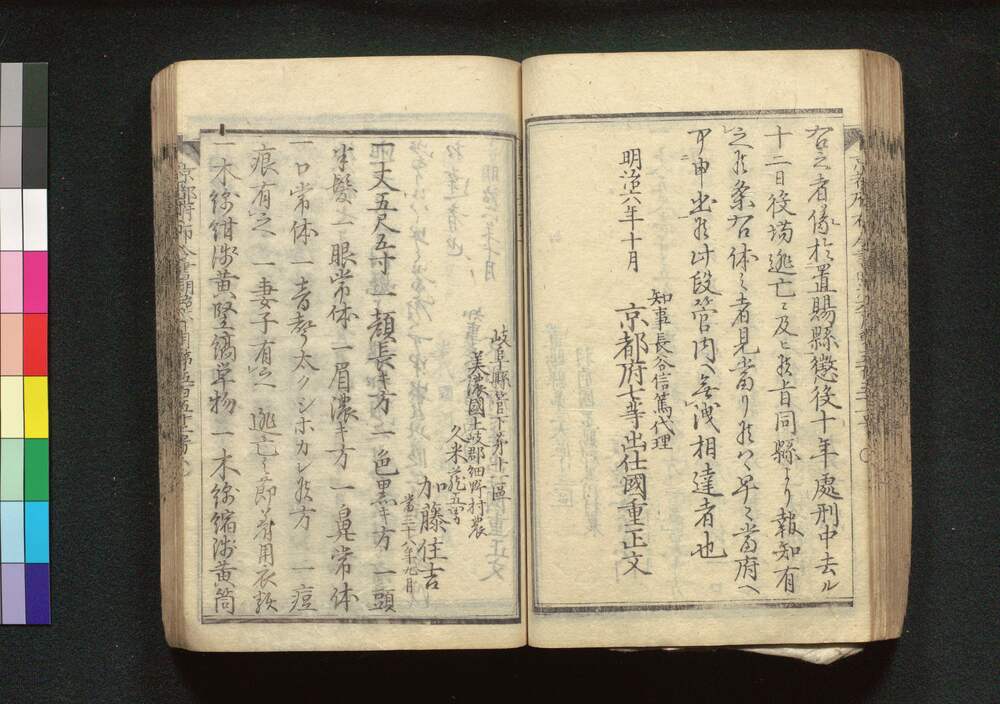 右之者儀於置賜縣懲役十年處刑中去ル
十二日役場逃亡ニ及ヒ候旨同縣ヨリ報知有
之候条右体之者見當リ候ハヽ早々當府ヘ
可申出候此段管内ヘ無洩相達者也
明治六年十月
知事長谷信篤代理
京都府七等出仕國重正文
岐阜縣管下第廿一區
美濃國土岐郡細野村農
久米蔵五男
加藤住吉
當二十八年九月
一丈五尺五寸 一顔長キ方 一色黒キ方 一頭
半髪 一眼常体 一眉濃キ方 一鼻常体
一口常体 一音声太クシホカレ候方 一痘
痕有之 一妻子有之 逃亡之節着用衣類
一木綿紺浅黄竪縞単物 一木綿縮浅黄筒